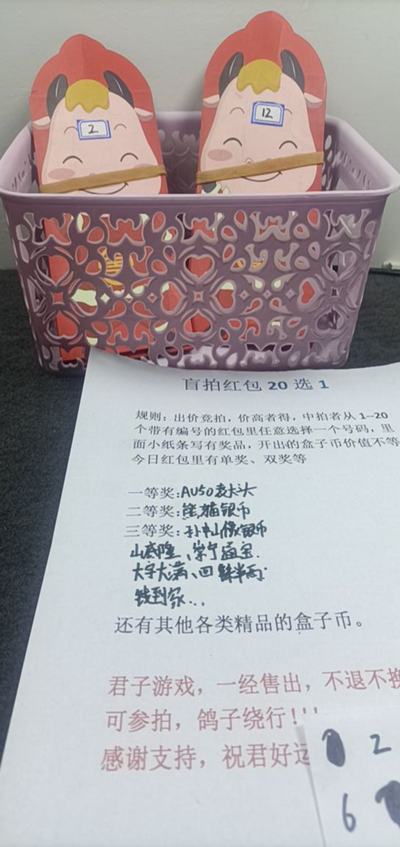 2
12
盲拍红包 20 选 1
规则：出价竞拍，价高者得，中拍者从 1--20
个带有编号的红包里任意选择一个号码，里
面小纸条写有奖品，开出的盒子币价值不等
今日红包里有单奖、双奖等
一等奖：AU50袁大头
二等奖：熊猫银币
三等奖：孙中山像银币
大字大满、
还有其他各类精品的盒子币。
君子游戏，一经售出，不退不换
可参拍，鸽子绕行！！！
感谢支持，祝君好运
2
6